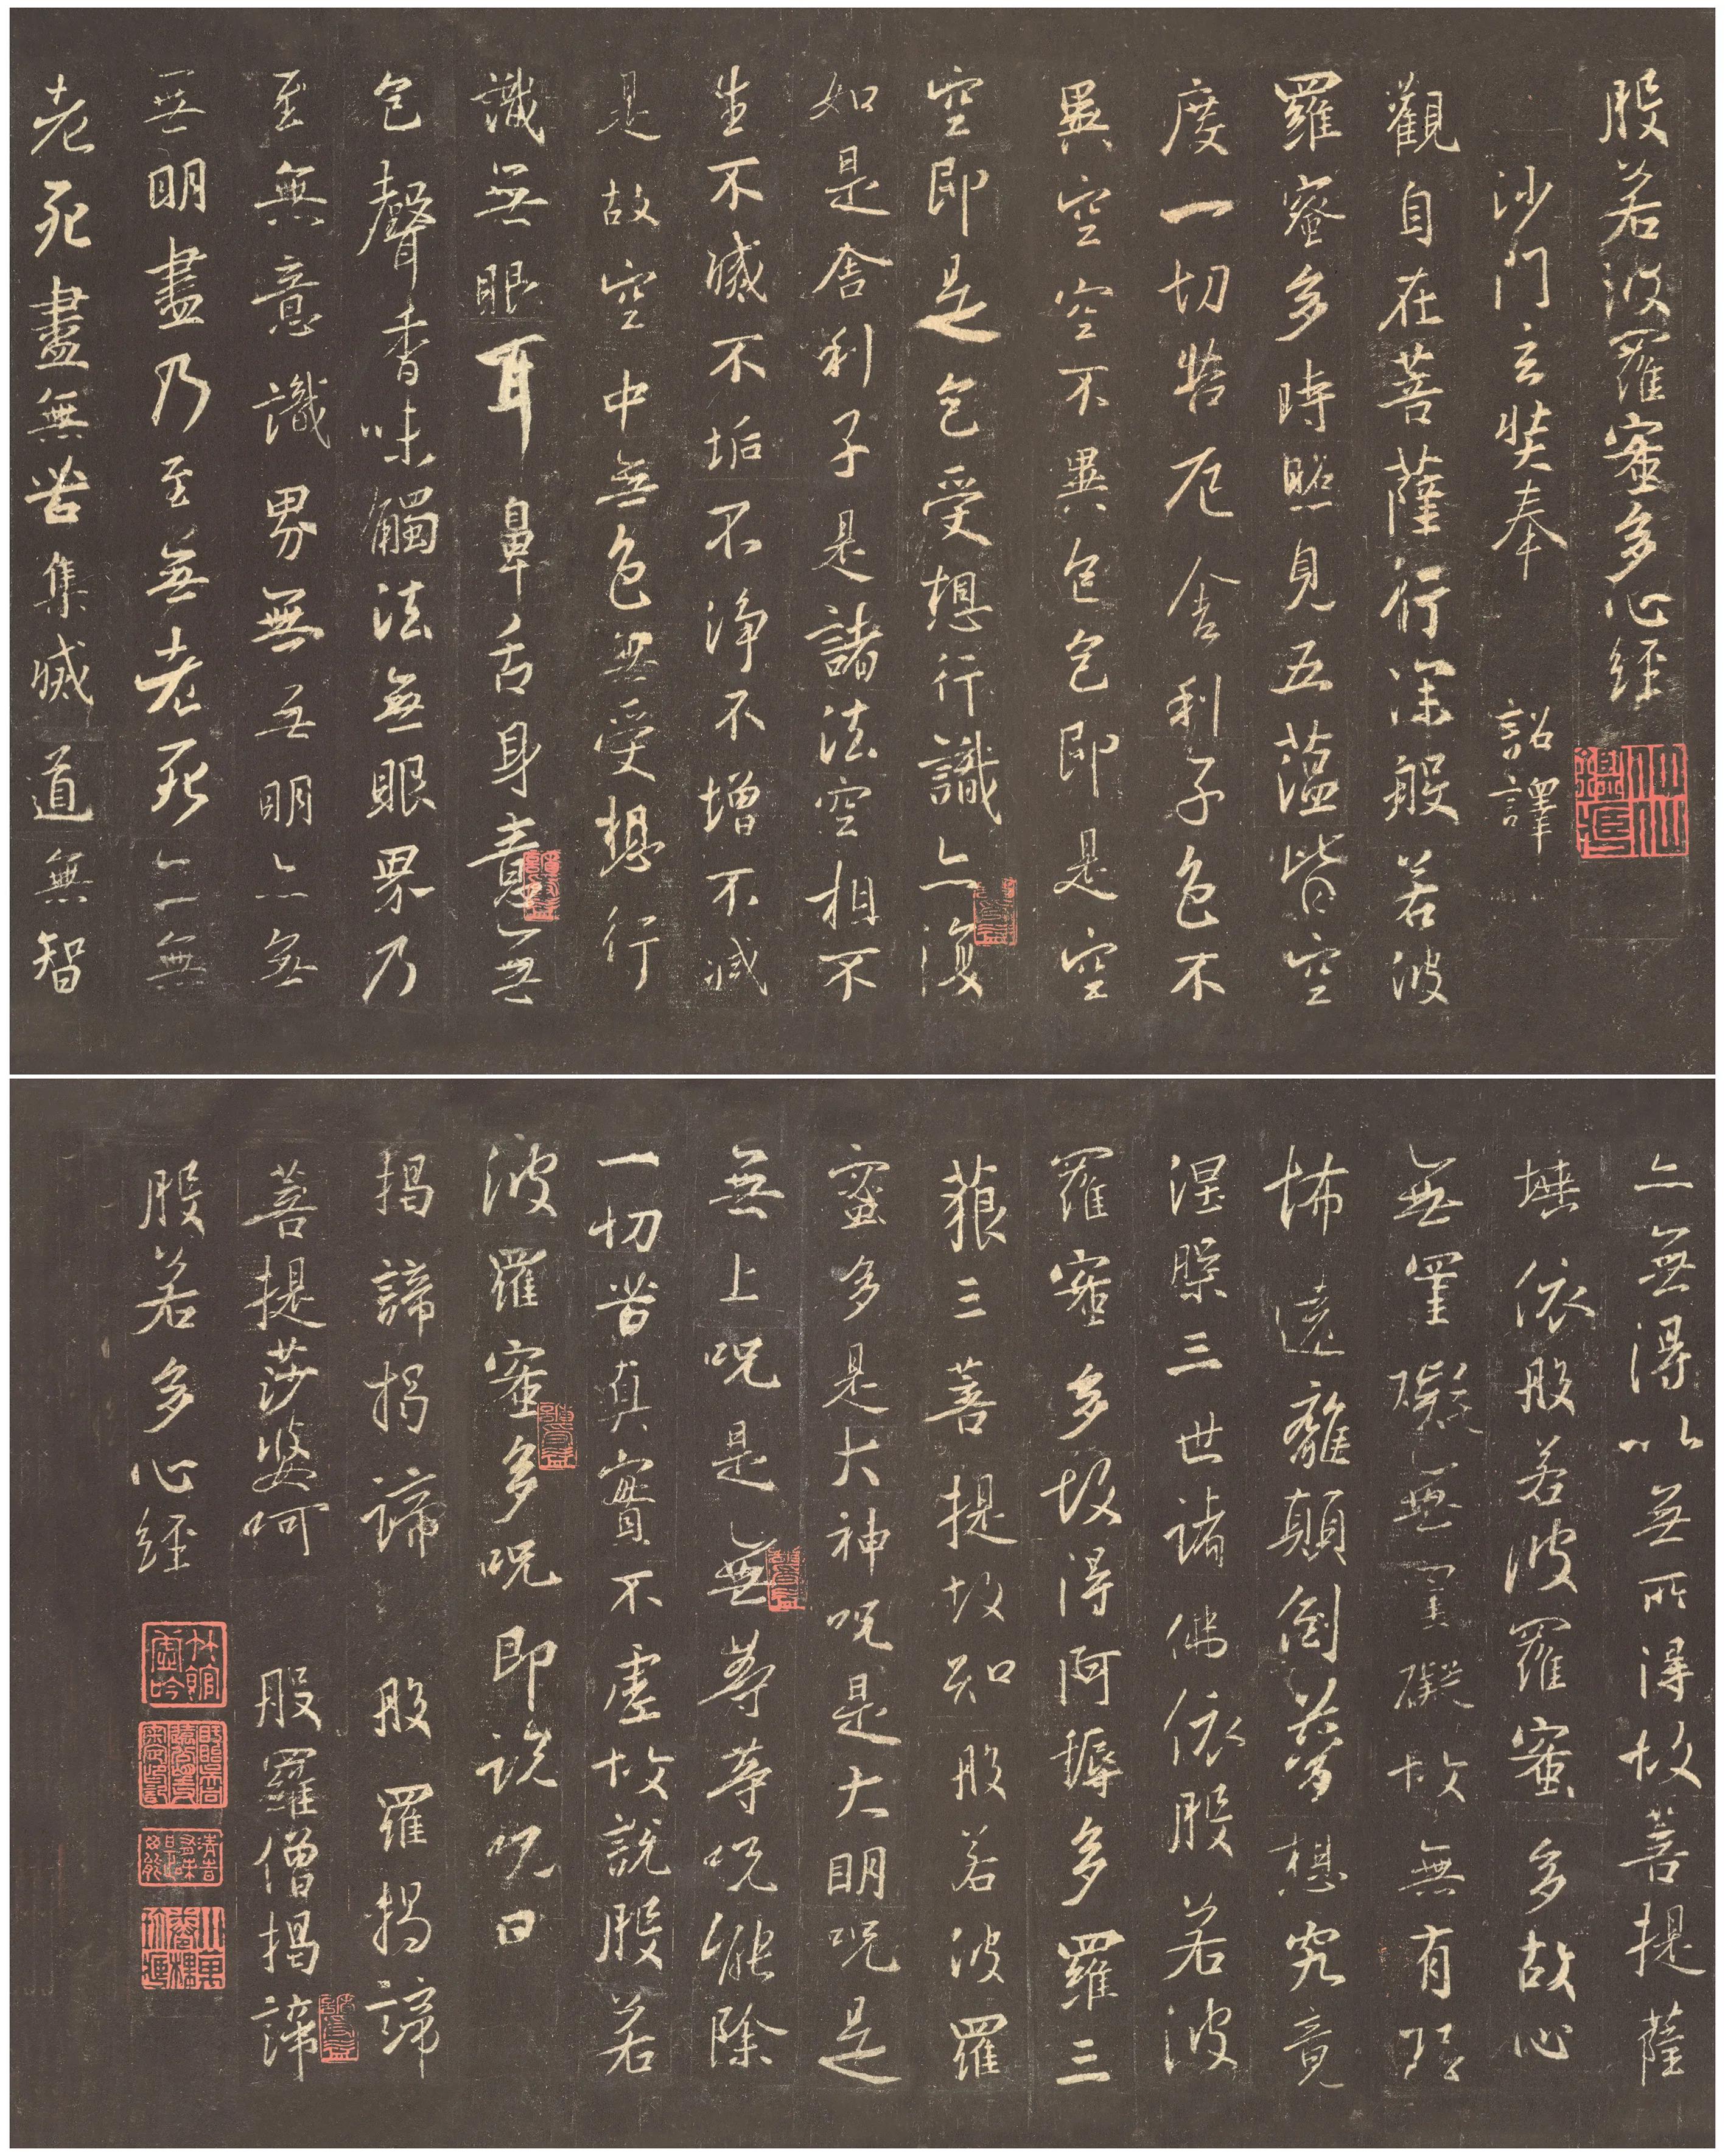 般若波羅蜜多心經
沙門玄奘奉 詔譯
觀自在菩薩行深般若波
羅蜜多時照見五蘊皆空
度一切苦厄舍利子色不
異空空不異色色即是空
空即是色受想行識亦復
如是舍利子是諸法空相不
生不滅不垢不淨不增不減
是故空中無色無受想行
識無眼耳鼻舌身意無
色聲香味觸法無眼界乃
至無意識界無無明亦無
無明盡乃至無老死亦無
老死盡無苦集滅道無智
亦無得以無所得故菩提薩
埵依般若波羅蜜多故心
無罣礙無罣礙故無有恐
怖遠離顛倒夢想究竟
涅槃三世諸佛依般若波
羅蜜多故得阿耨多羅三
藐三菩提故知般若波羅
蜜多是大神呪是大明呪是
無上呪是無等等呪能除
一切苦真實不虛故說般若
波羅蜜多呪即說呪曰
揭諦揭諦 般羅揭諦
菩提莎婆呵 般羅僧揭諦
般若多心經